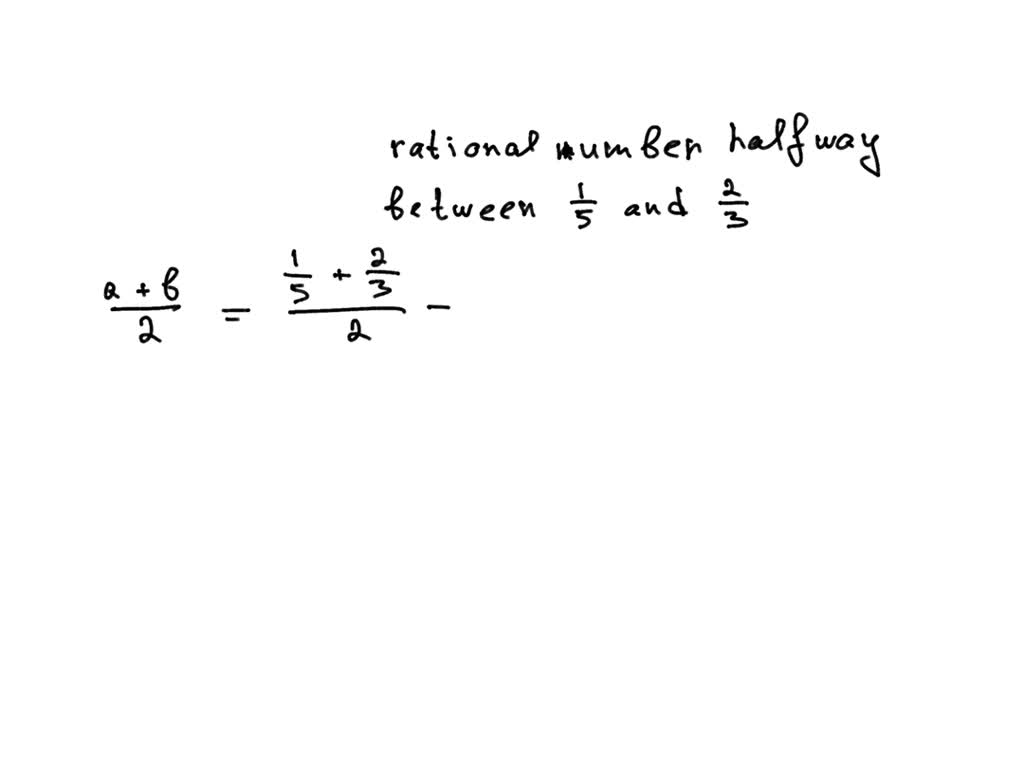 rational number halfway
between 1/5 and 2/3
(a + b)/2 = (1/5 + 2/3)/2 –